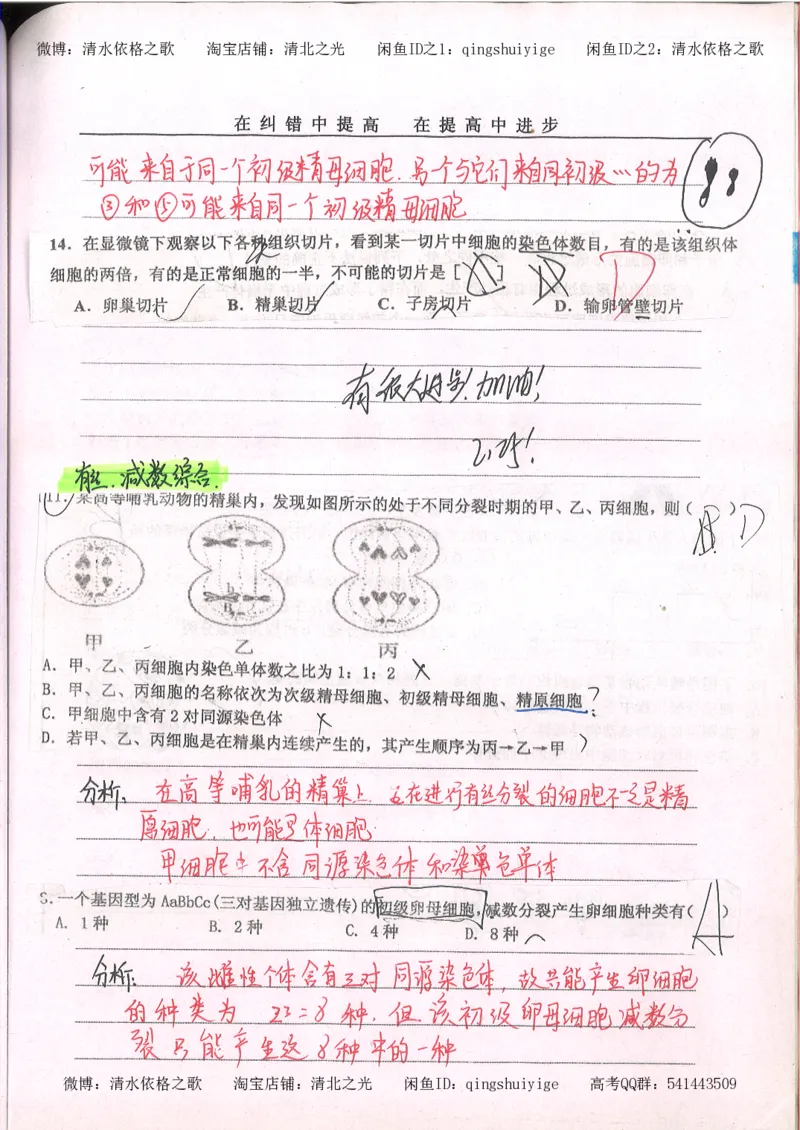 微博：清水依格之歌 淘宝店铺：清北之光 闲鱼ID之1：qingshuiyige 闲鱼ID之2：清水依格之歌
在纠错中提高 在提高中进步
可能来自于同一个初级精母细胞.另一个与它们来自同初级…的为
③和⑤可能来自同一个初级精母细胞
14．在显微镜下观察以下各种组织切片，看到某一切片中细胞的染色体数目，有的是该组织体
细胞的两倍，有的是正常细胞的一半，不可能的切片是[ ] D
A．卵巢切片 B．精巢切片 C．子房切片 D．输卵管壁切片
有很大进步!加油!
有丝.减数综合.
11．某高等哺乳动物的精巢内，发现如图所示的处于不同分裂时期的甲、乙、丙细胞，则( ) D
b
B
甲 乙 丙
A．甲、乙、丙细胞内染色单体数之比为1：1：2 ×
B．甲、乙、丙细胞的名称依次为次级精母细胞、初级精母细胞、精原细胞?
C．甲细胞中含有2对同源染色体 ×
D．若甲、乙、丙细胞是在精巢内连续产生的，其产生顺序为丙→乙→甲
分析: 在高等哺乳的精巢上 正在进行有丝分裂的细胞不一定是精
原细胞.也可能是体细胞.
甲细胞中不含同源染色体和染色单体
一个基因型为AaBbCc(三对基因独立遗传)的初级卵母细胞,减数分裂产生卵细胞种类有( A )
A. 1种 B. 2种 C. 4种 D. 8种
分析: 该雌性个体含有三对同源染色体，故共能产生卵细胞
的种类为 =8种.但该初级卵母细胞减数分
裂只能产生这8种中的一种
微博：清水依格之歌 淘宝店铺：清北之光 闲鱼ID：qingshuiyige 高考QQ群：541443509